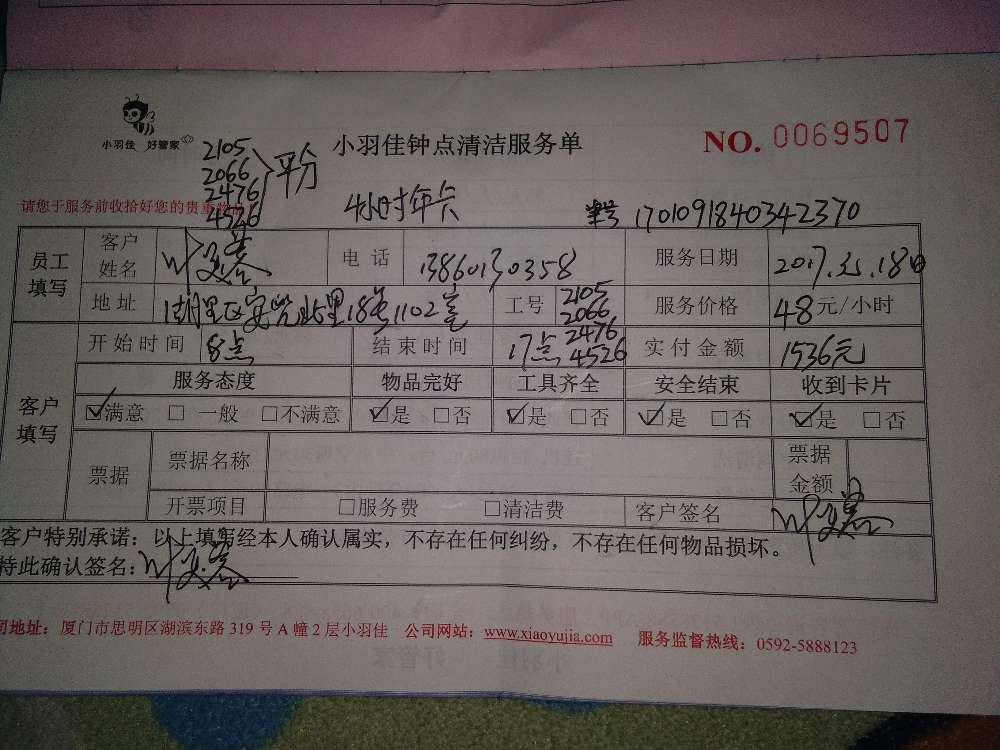 小羽佳 好管家
小羽佳钟点清洁服务单
NO. 0069507
2105
2066
2476
4526
平分
请您于服务前收拾好您的贵重
4小时年卡
单号 1701091840342370
员工填写
客户姓名 叶
电话 13860130358
服务日期 2017.元.18日
地址 湖里区安兜北里18号1102室
工号 2105
2066
2476
4526
服务价格 48元/小时
开始时间 8点
结束时间 17点
实付金额 1536元
客户填写
服务态度 物品完好 工具齐全 安全结束 收到卡片
☑满意 □一般 □不满意 ☑是 □否 ☑是 □否 ☑是 □否 ☑是 □否
票据
票据名称
票据金额
开票项目 □服务费 □清洁费 客户签名
客户特别承诺：以上填写经本人确认属实，不存在任何纠纷，不存在任何物品损坏。
持此确认签名：
司地址：厦门市思明区湖滨东路 319 号 A 幢 2 层小羽佳 公司网站：www.xiaoyujia.com 服务监督热线：0592-5888123